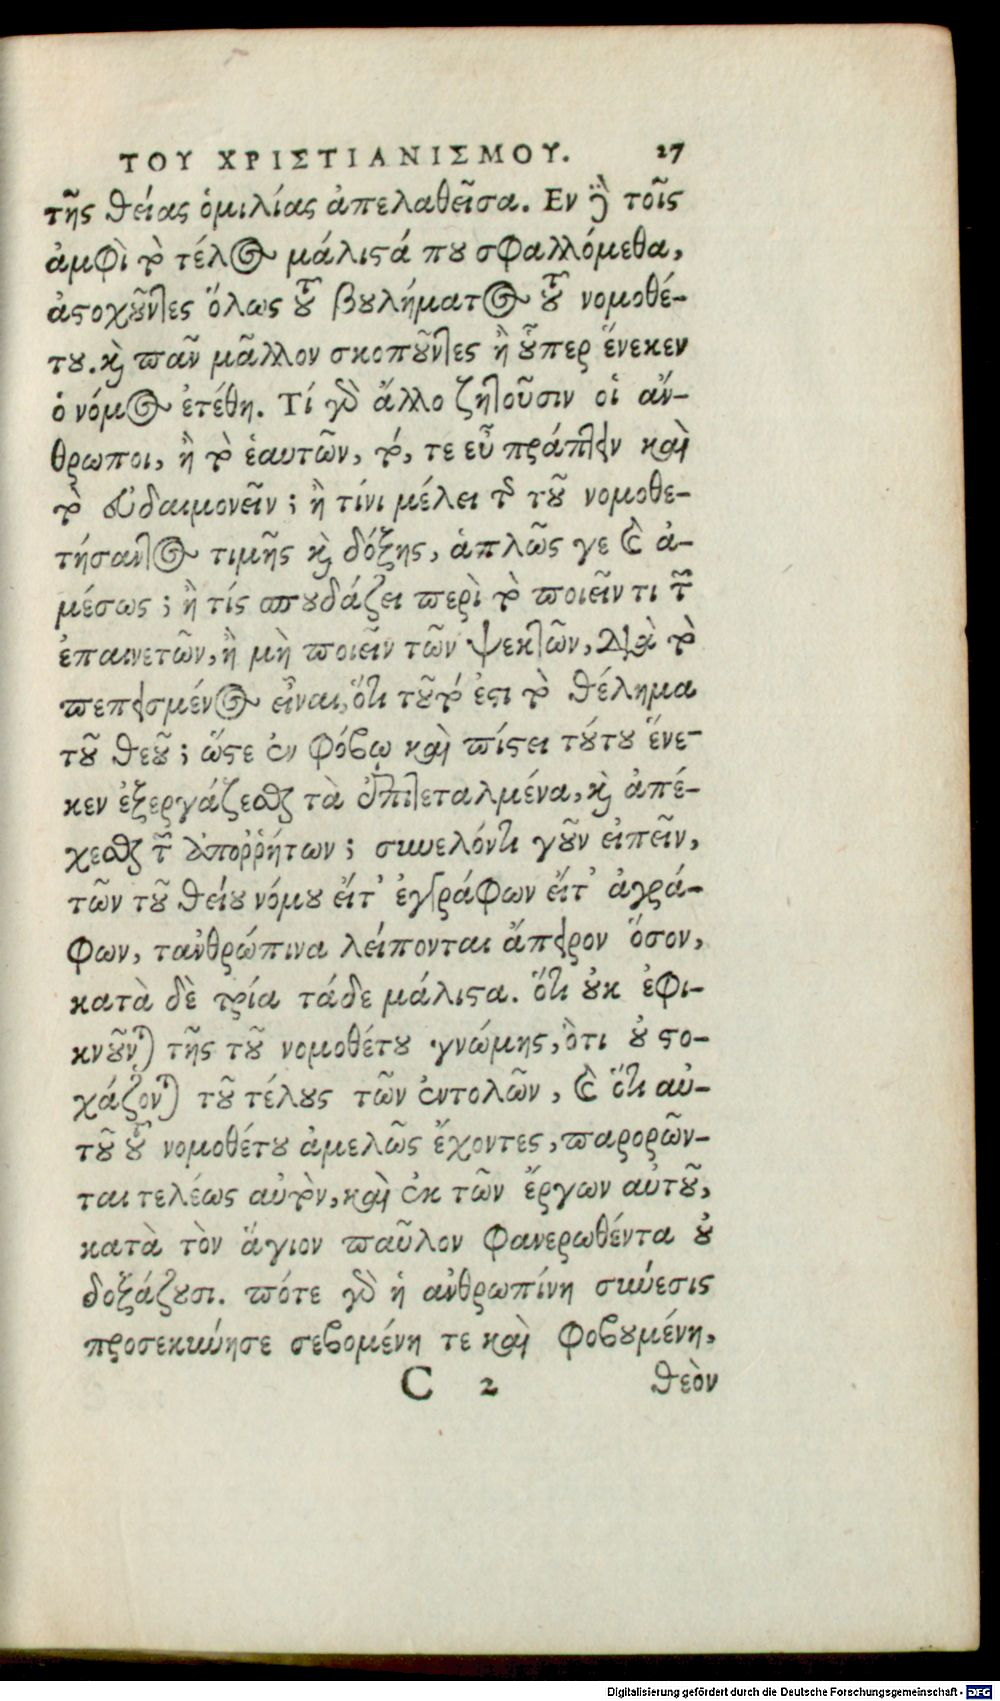 ΤΟΥ ΧΡΙΣΤΙΑΝΙΣΜΟΥ. 27
τῆς θείας ὁμιλίας ἀπελαθεῖσα. Εν δὲ τοῖς
ἀμφὶ τὸ τέλος μάλιστά που σφαλλόμεθα,
ἀστοχοῦντες ὅλως τοῦ βουλήματος τοῦ νομοθέ-
του. καὶ πᾶν μᾶλλον σκοποῦντες ἢ οὗπερ ἕνεκεν
ὁ νόμος ἐτέθη. Τί γὰρ ἄλλο ζητοῦσιν οἱ ἄν-
θρωποι, ἢ τὸ ἑαυτῶν, τό, τε εὖ πράττειν καὶ
τὸ εὐδαιμονεῖν; ἢ τίνι μέλει τῆς τοῦ νομοθε-
τήσαντος τιμῆς καὶ δόξης, ἁπλῶς γε καὶ ἀ-
μέσως; ἢ τίς σπουδάζει περὶ τὸ ποιεῖν τι τῶν
ἐπαινετῶν, ἢ μὴ ποιεῖν τῶν ψεκτῶν, διὰ τὸ
πεπεισμένος εἶναι, ὅτι τοῦτό ἐστι τὸ θέλημα
τοῦ θεοῦ; ὥστε ἐν φόβῳ καὶ πίστει τούτου ἕνε-
κεν ἐξεργάζεσθαι τὰ ἐπιτεταλμένα, καὶ ἀπέ-
χεσθαι τῶν ἀπορρήτων; συνελόντι γοῦν εἰπεῖν,
τῶν τοῦ θείου νόμου εἴτ' ἐγγράφων εἴτ' ἀγρά-
φων, τανθρώπινα λείπονται ἄπειρον ὅσον,
κατὰ δὲ τρία τάδε μάλιστα. ὅτι οὐκ ἐφι-
κνοῦνται τῆς τοῦ νομοθέτου γνώμης, ὅτι οὐ στο-
χάζονται τοῦ τέλους τῶν ἐντολῶν, καὶ ὅτι αὐ-
τοῦ τοῦ νομοθέτου ἀμελῶς ἔχοντες, παρορῶν-
ται τελέως αὐτὸν, καὶ ἐκ τῶν ἔργων αὐτοῦ,
κατὰ τὸν ἅγιον παῦλον φανερωθέντα οὐ
δοξάζουσι. πότε γὰρ ἡ ἀνθρωπίνη σύνεσις
προσεκύνησε σεβομένη τε καὶ φοβουμένη,
C 2 θεὸν
Digitalisierung gefördert durch die Deutsche Forschungsgemeinschaft - DFG